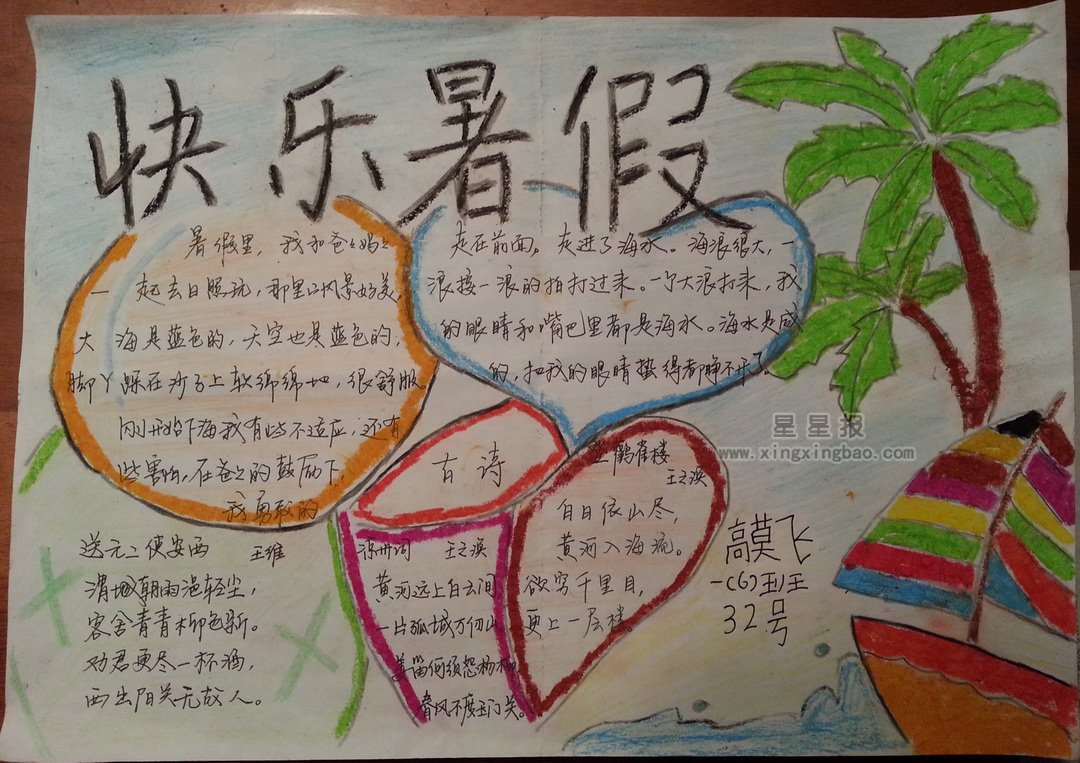 快乐暑假
暑假里，我和爸々妈々
一起去日照玩，那里的风景好美，
大海是蓝色的，天空也是蓝色的，
脚丫踩在沙子上软绵绵地，很舒服。
刚开始下海我有些不适应，还有
些害怕，在爸々的鼓励下，
我勇敢的
走在前面，走进了海水。海浪很大，一
浪接一浪的拍打过来。一个大浪打来，我
的眼睛和嘴巴里都是海水。海水是咸
的，把我的眼睛蛰得都睁不开了
星星报
www.xingxingbao.com
古诗
送元二使安西 王维
渭城朝雨浥轻尘，
客舍青青柳色新。
劝君更尽一杯酒，
西出阳关无故人。
凉州词 王之涣
黄河远上白云间
一片孤城万仞山
羌笛何须怨杨柳
春风不度玉门关。
登鹳雀楼
王之涣
白日依山尽，
黄河入海流。
欲穷千里目，
更上一层楼。
高莫飞
一（6）班
32号